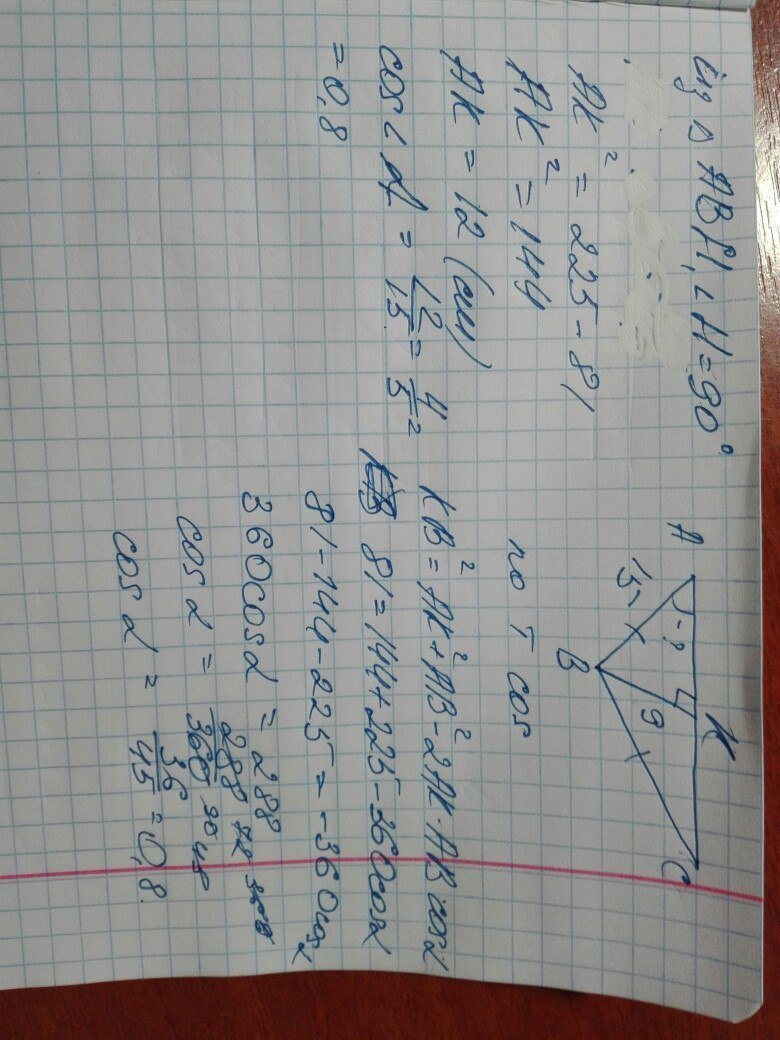 из Δ ABH, ∠H = 90°
AK² = 225 - 81
AK² = 144
AK = 12 (см)
cos ∠ α = 12/15 = 4/5 =
= 0,8
A
K
C
B
15
9
по T cos
KB² = AK² + AB² - 2AK·AB cosα
81 = 144 + 225 - 360cosα
81 - 144 - 225 = -360cosα
360cosα = 288
cosα = 288/360
cosα = 36/45 = 0,8.